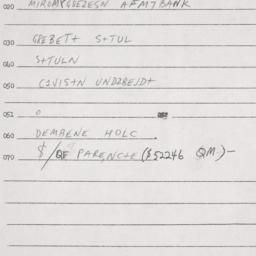 020 MIROMYGBEZESN AFM7BANK
030 GPEBET+ S+TUL
040 S+TULN
050 C1VIST~ UND2BEJD+
051 0
060 DEMBENE HOLC .
070 $/QF PARENCHE ($52246 QM.)-